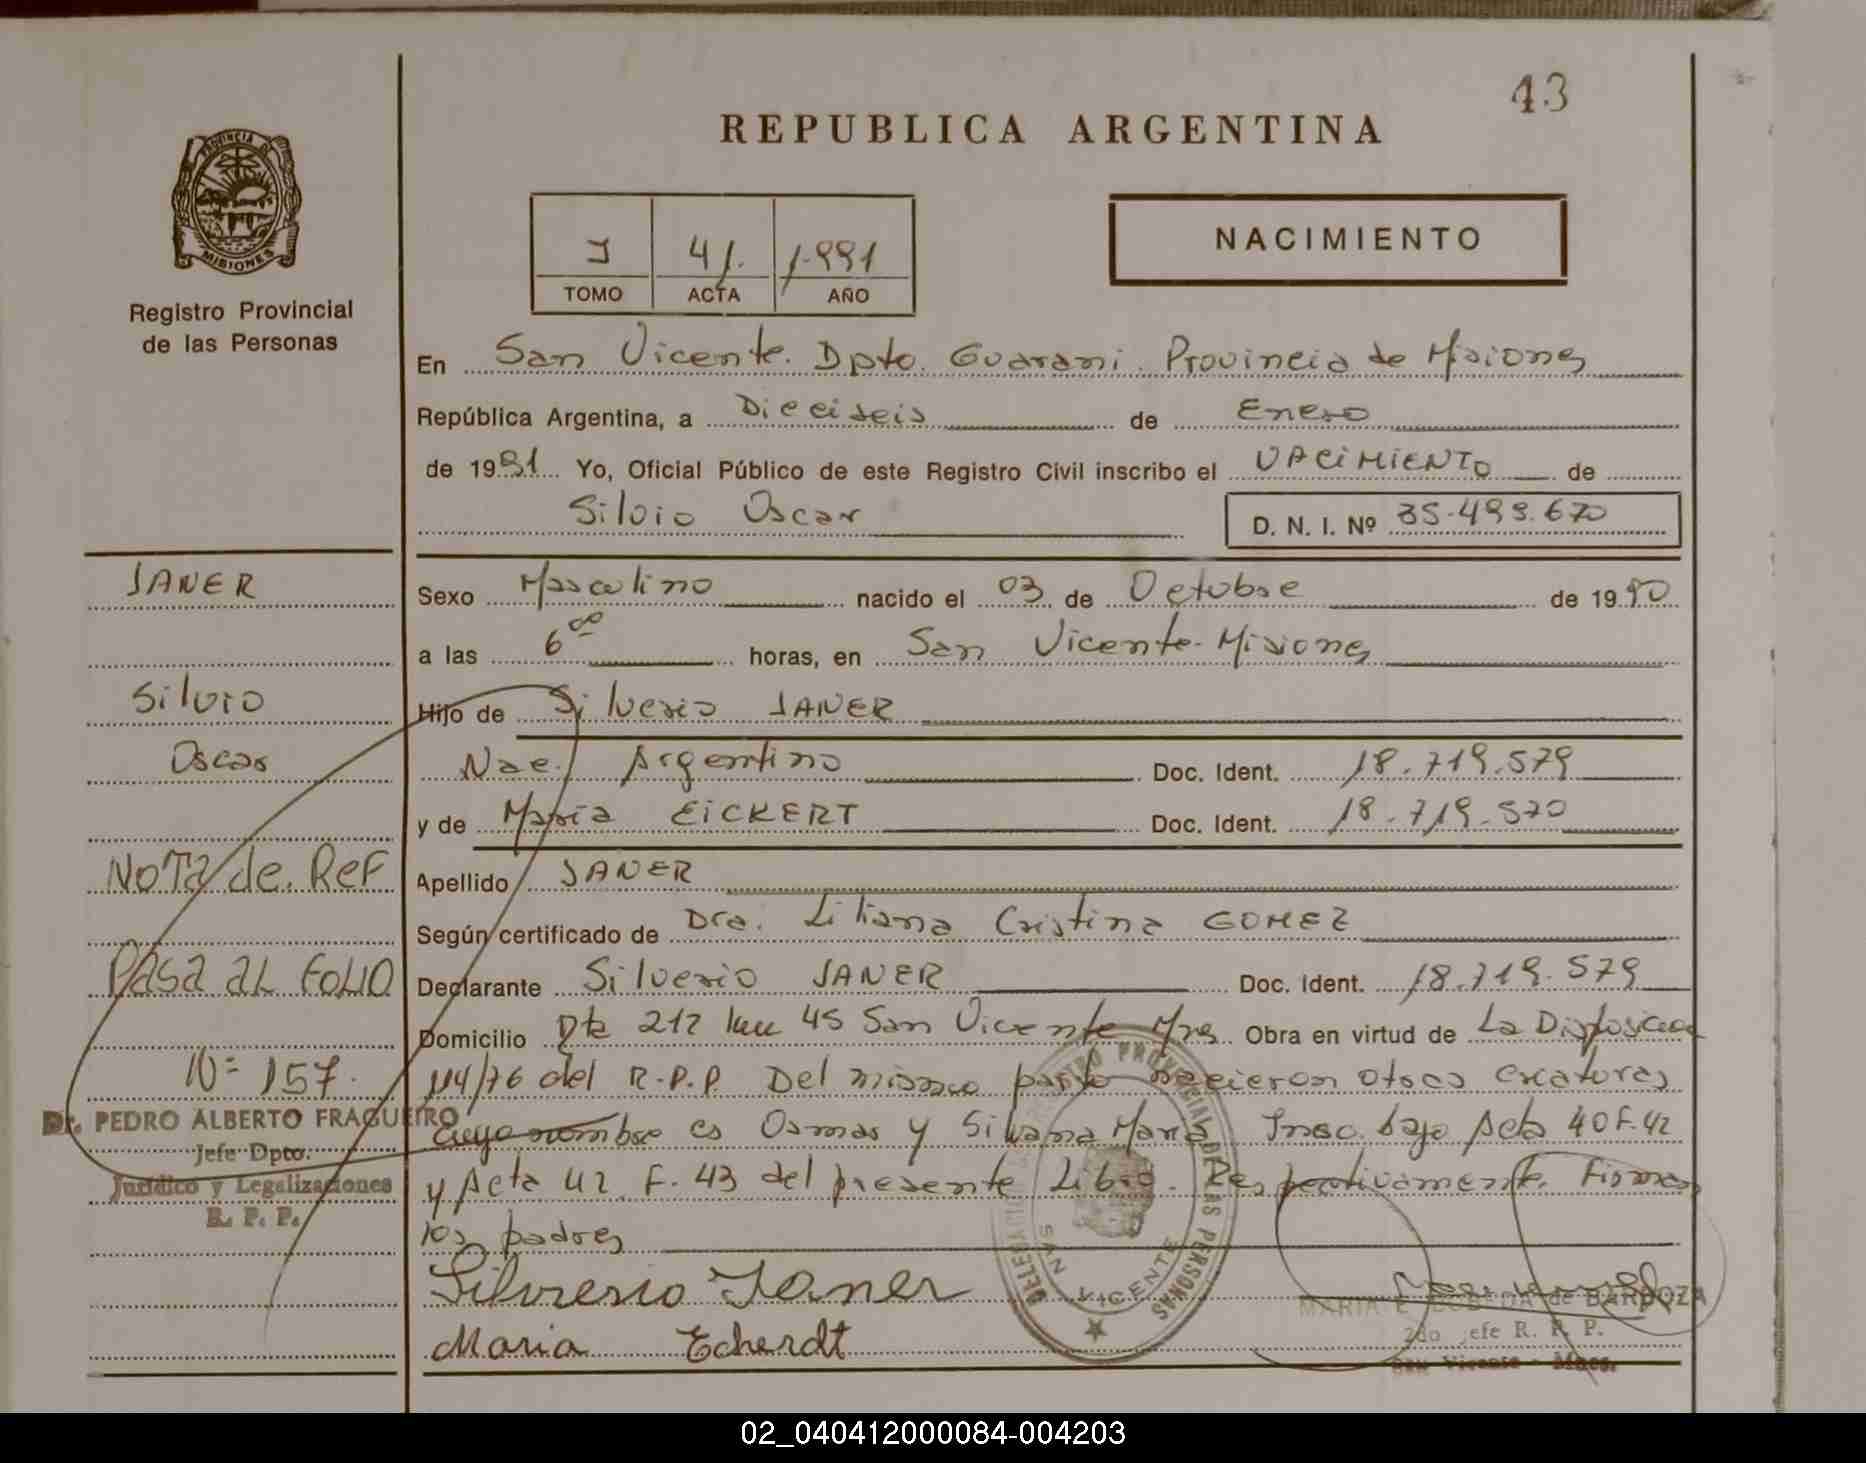 43
REPUBLICA ARGENTINA
PROVINCIA DE
MISIONES
Registro Provincial
de las Personas
I 41. 1.991
TOMO ACTA AÑO
NACIMIENTO
En San Vicente. Dpto. Guarani. Provincia de Misiones
República Argentina, a Dieciseis de Enero
de 1991 Yo, Oficial Público de este Registro Civil inscribo el NACIMIENTO de
Silvio Oscar
D. N. I. Nº 35.499.670
JANER
Silvio
Oscar
NOTa de ReF
PASA AL FOLIO
Nº 157.
Dr. PEDRO ALBERTO FRAGUEIRO
Jefe Dpto.
Jurídico y Legalizaciones
R. P. P.
Sexo Masculino nacido el 03 de Octubre de 1990
a las 6 00 horas, en San Vicente-Misiones
Hijo de Silverio JANER
Nac. Argentino Doc. Ident. 18.719.579
y de Maria EICKERT Doc. Ident. 18.719.570
Apellido JANER
Según certificado de Dra. Liliana Cristina GOMEZ
Declarante Silverio JANER Doc. Ident. 18.719.579
Domicilio 212 km 45 San Vicente Mnes Obra en virtud de La Disposicion
114/76 del R.P.P. Del mismo parto nacieron otras creatures
cuyo nombre es Osmar y Silvana Maria Insc. bajo Acta 40 F. 42
y Acta 42 F. 43 del presente Libro. Respectivamente. Firman
los padres
Silverio Janer
Maria Echerdt
DELEGACION REGISTRO PROVINCIAL DE LAS PERSONAS
SAN VICENTE
MARIA E. DE BARBOZA
2do Jefe R. P. P.
San Vicente - Mnes.
02_040412000084-004203